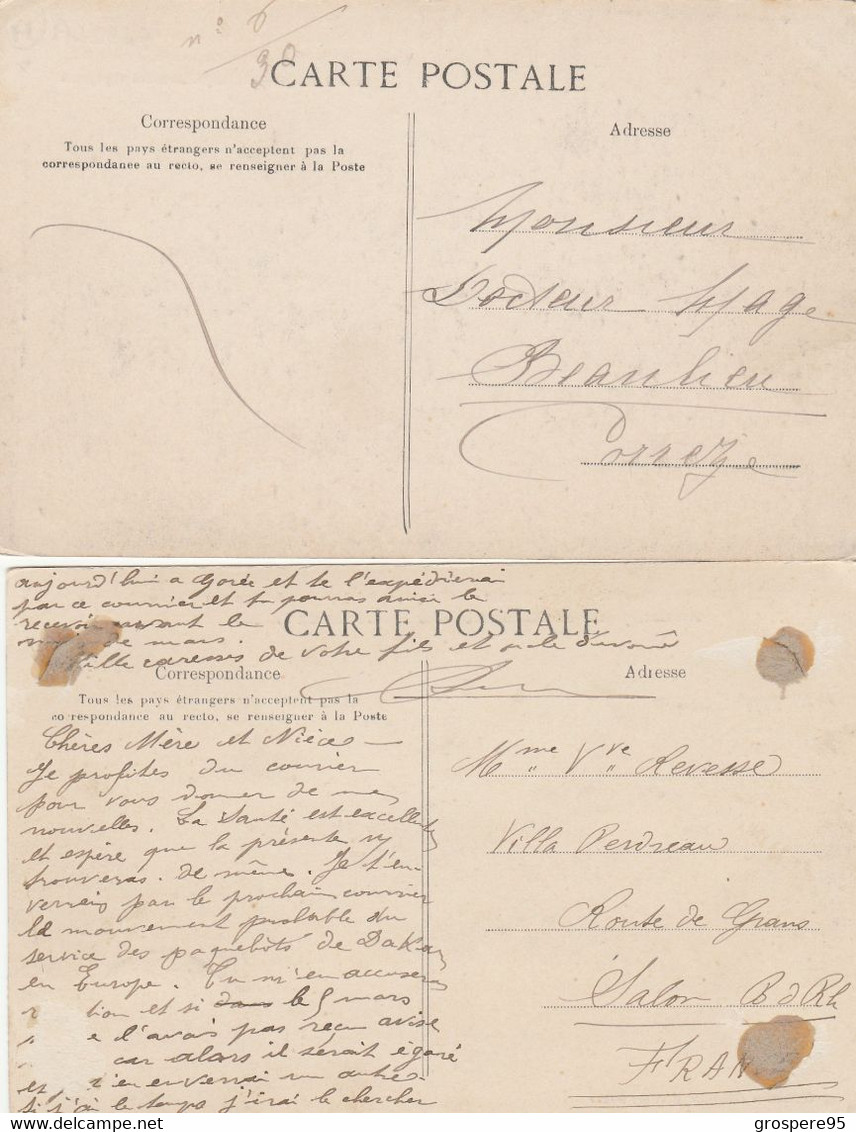 n° 6
30
CARTE POSTALE
Correspondance
Tous les pays étrangers n'acceptent pas la
correspondance au recto, se renseigner à la Poste
Adresse
Monsieur
Docteur Mage
Beaulieu
Corrèze
aujourd'hui a Gorée et te l'expédierai
par ce courrier et tu pourras ainsi le
recevoir avant le
de mars.
Mille caresses de votre fils et oncle dévoué
CARTE POSTALE
Correspondance
Tous les pays étrangers n'acceptent pas la
correspondance au recto, se renseigner à la Poste
Adresse
Chères Mère et Nièce —
Je profites du courrier
pour vous donner de mes
nouvelles. La Santé est excellente
et espère que la présente vs
trouveras de même. Je t'en-
verrais par le prochain courrier
le mouvement probable du
service des paquebots de Dakar
en Europe. Tu m'en accuseras
tion et si dans le 5 mars
e l'avais pas reçu avise
car alors il serait égaré
et t'en enverrai un autre
si j'ai le temps j'irai le chercher
Mme Vve Revesse
Villa Perdreau
Route de Grans
Salon B d Rh
FRAN
Delcampe.net
grospere95